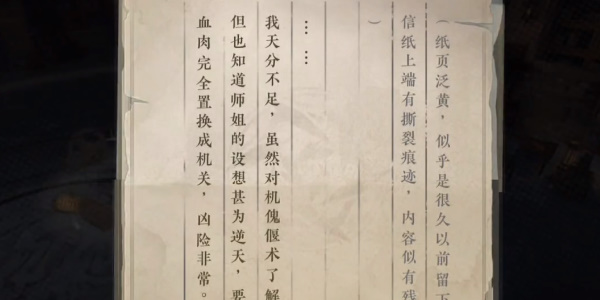 （纸页泛黄，似乎是很久以前留下
信纸上端有撕裂痕迹，内容似有残
）
……
我天分不足，虽然对机傀偃术了解
但也知道师姐的设想甚为逆天，要
血肉完全置换成机关，凶险非常。